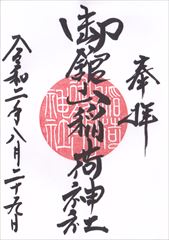 奉拝
御館山稲荷神社
令和二年八月二十九日